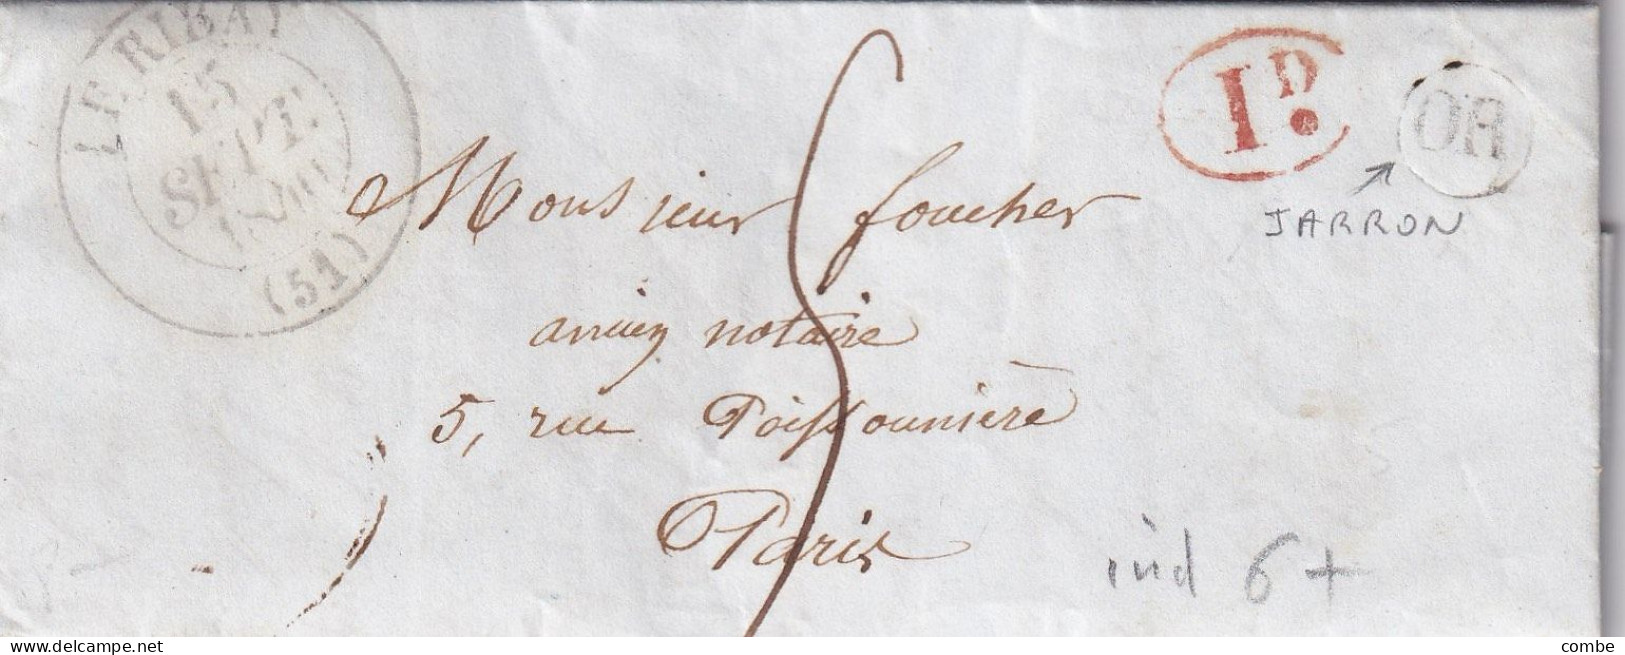 LE RIBAY
15
SEPT.
(51)
1D.
OR
JARRON
Monsieur foucher
ancien notaire
5, rue Poissonnière
Paris
5
ind 6+
delcampe.net
combe